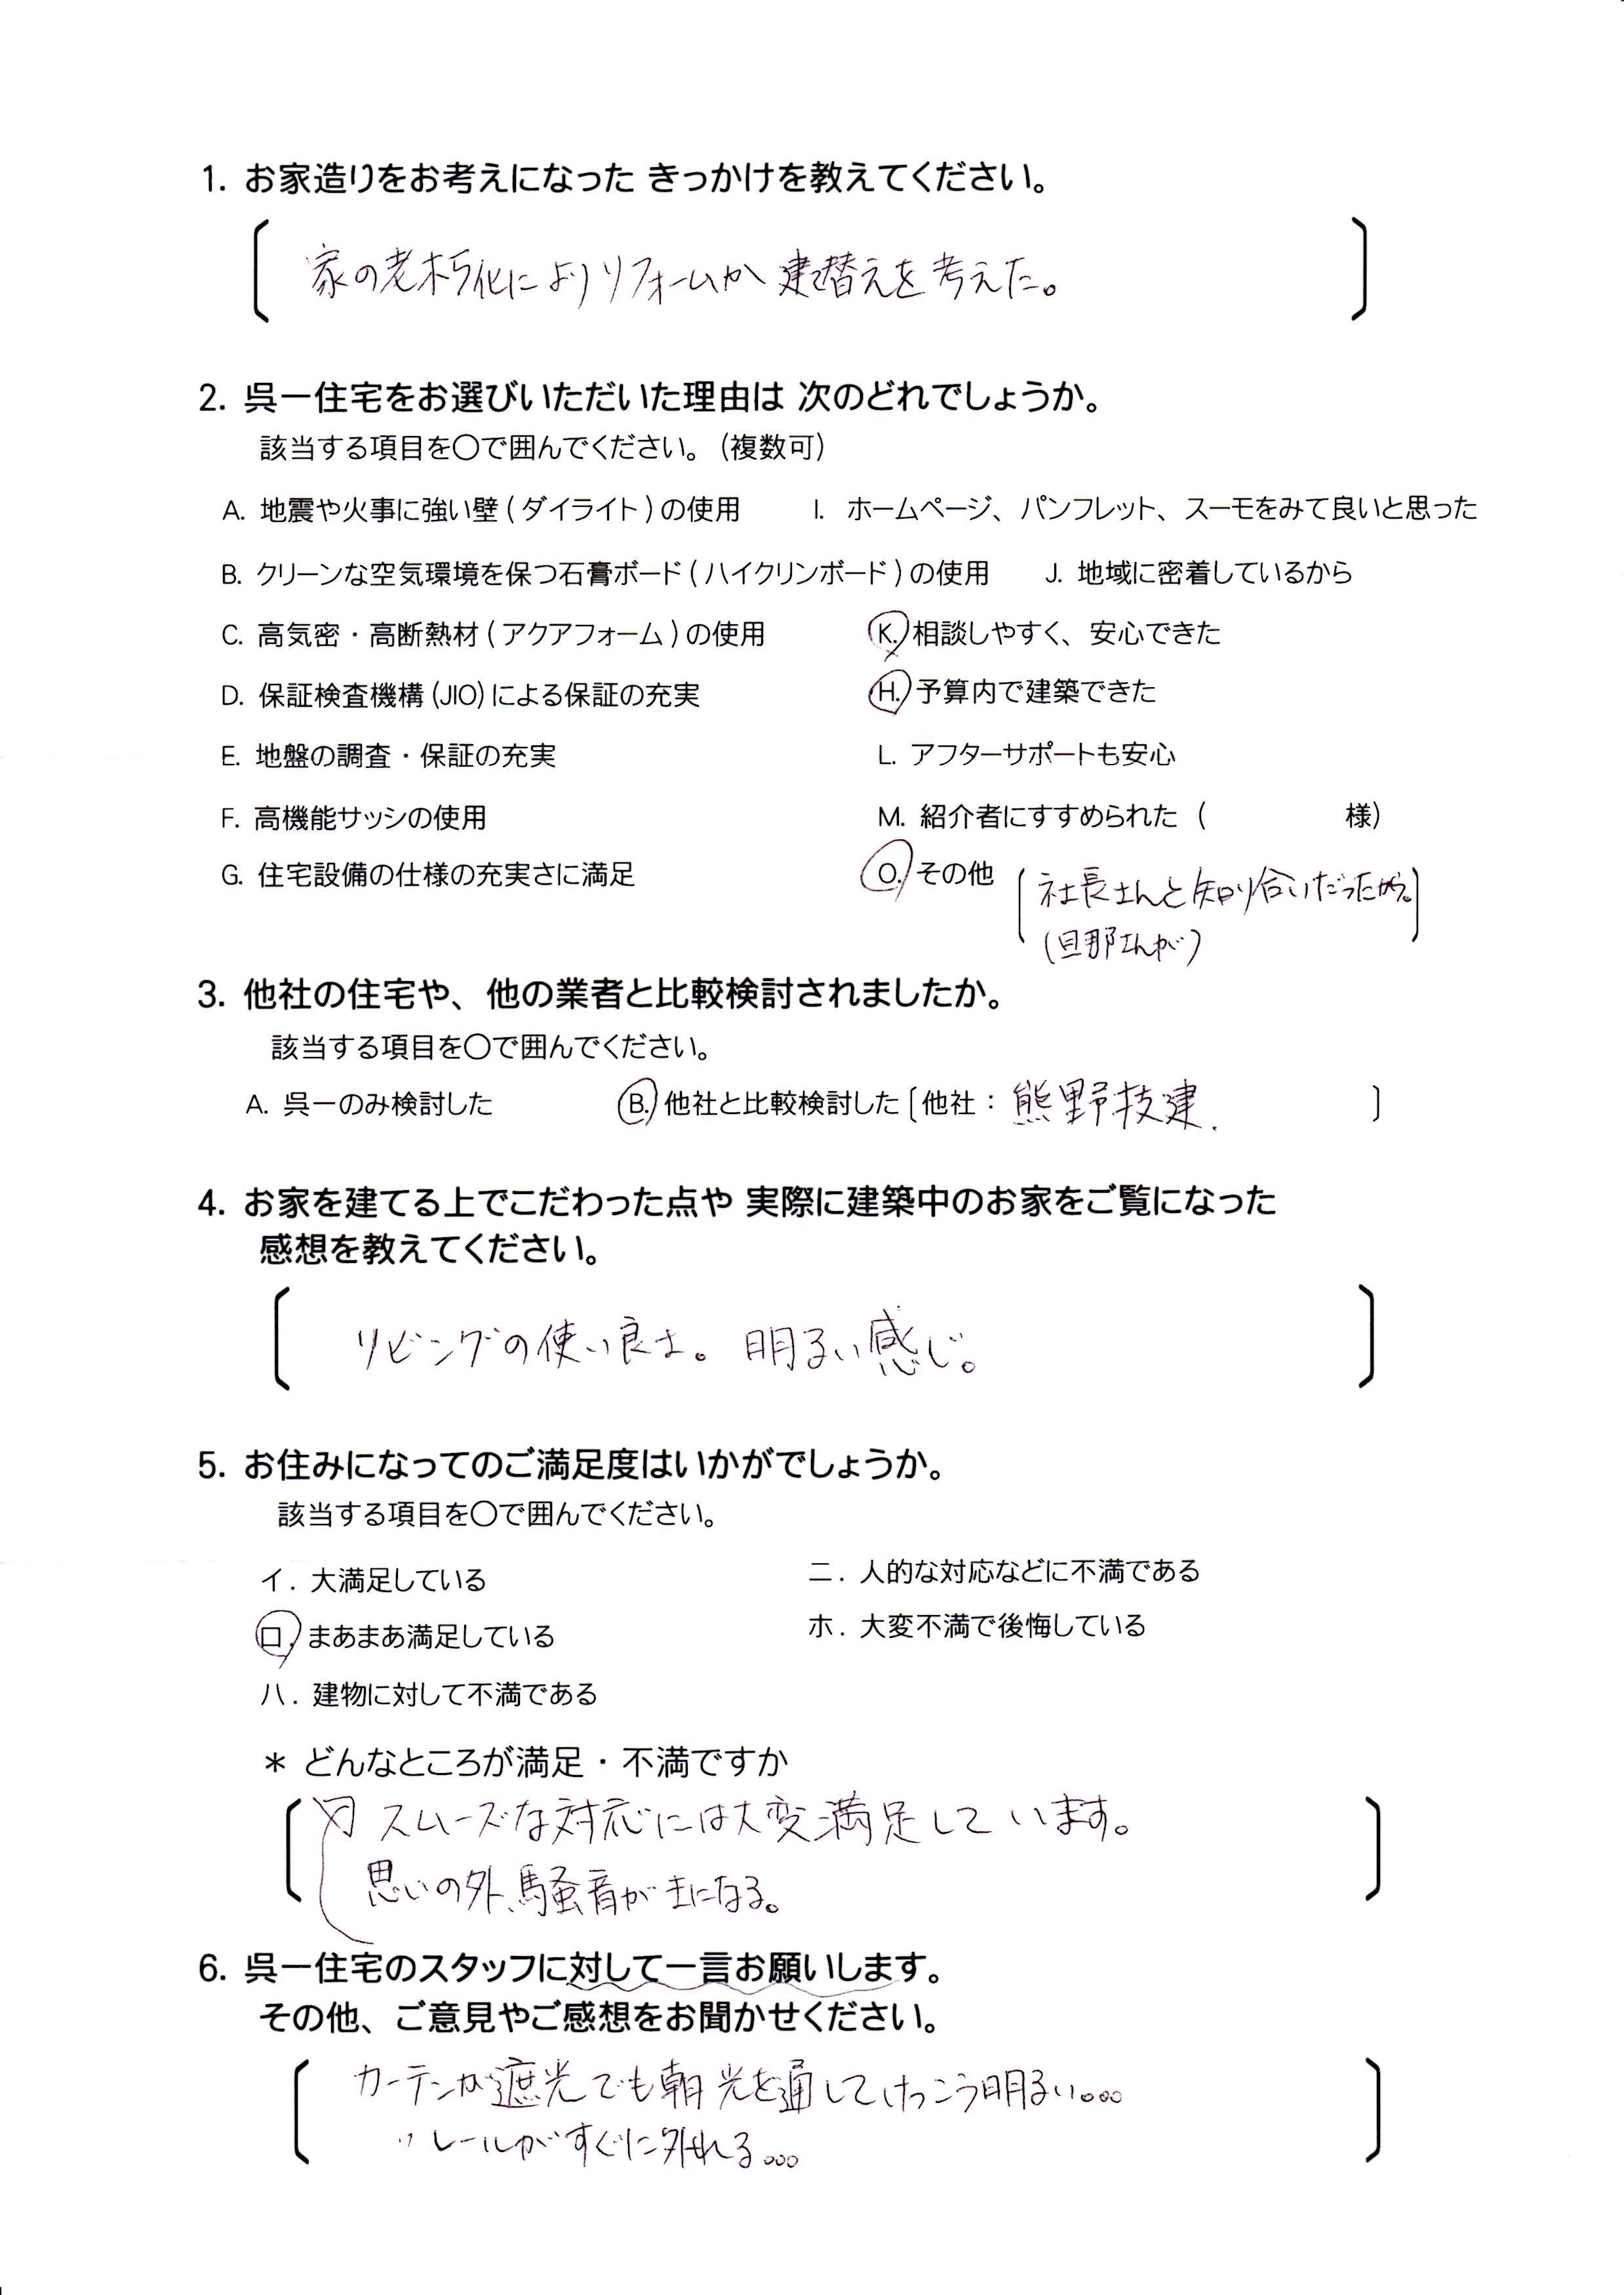 1. お家造りをお考えになった きっかけを教えてください。
家の老朽化によりリフォームか建替えを考えた。
2. 呉一住宅をお選びいただいた理由は 次のどれでしょうか。
該当する項目を〇で囲んでください。(複数可)
A. 地震や火事に強い壁(ダイライト)の使用 I. ホームページ、パンフレット、スーモをみて良いと思った
B. クリーンな空気環境を保つ石膏ボード(ハイクリンボード)の使用 J. 地域に密着しているから
C. 高気密・高断熱材(アクアフォーム)の使用 K. 相談しやすく、安心できた
D. 保証検査機構(JIO)による保証の充実 H. 予算内で建築できた
E. 地盤の調査・保証の充実 L. アフターサポートも安心
F. 高機能サッシの使用 M. 紹介者にすすめられた ( 様)
G. 住宅設備の仕様の充実さに満足 O. その他 社長さんと知り合いだったから。
(旦那さんが)
3. 他社の住宅や、他の業者と比較検討されましたか。
該当する項目を〇で囲んでください。
A. 呉一のみ検討した B. 他社と比較検討した〔他社：熊野技建.〕
4. お家を建てる上でこだわった点や 実際に建築中のお家をご覧になった
感想を教えてください。
リビングの使い良さ。明るい感じ。
5. お住みになってのご満足度はいかがでしょうか。
該当する項目を〇で囲んでください。
イ. 大満足している ニ. 人的な対応などに不満である
ロ. まあまあ満足している ホ. 大変不満で後悔している
ハ. 建物に対して不満である
＊ どんなところが満足・不満ですか
スムーズな対応には大変満足しています。
思いの外、騒音が気になる。
6. 呉一住宅のスタッフに対して一言お願いします。
その他、ご意見やご感想をお聞かせください。
カーテンが遮光でも朝光を通してけっこう明るい。。。
〃レールがすぐに外れる。。。